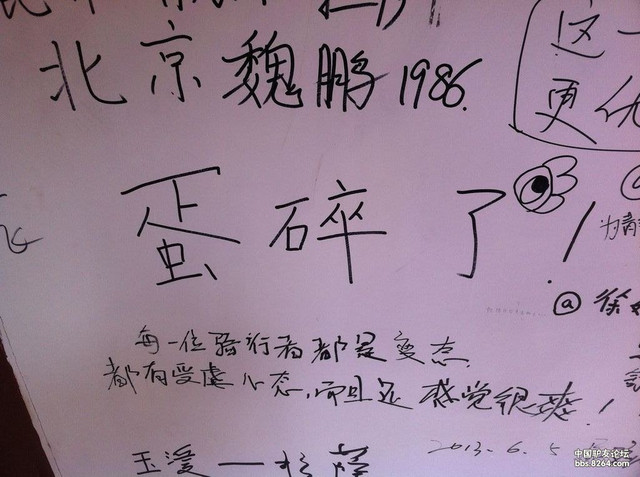 北京魏鹏1986.
这一
更优
蛋碎了!
为青
@徐
每一位骑行者都是变态.
都有受虐心态,而且还感觉很爽!
2013.6.5
玉溪——杉
中国驴友论坛
bbs.8264.com